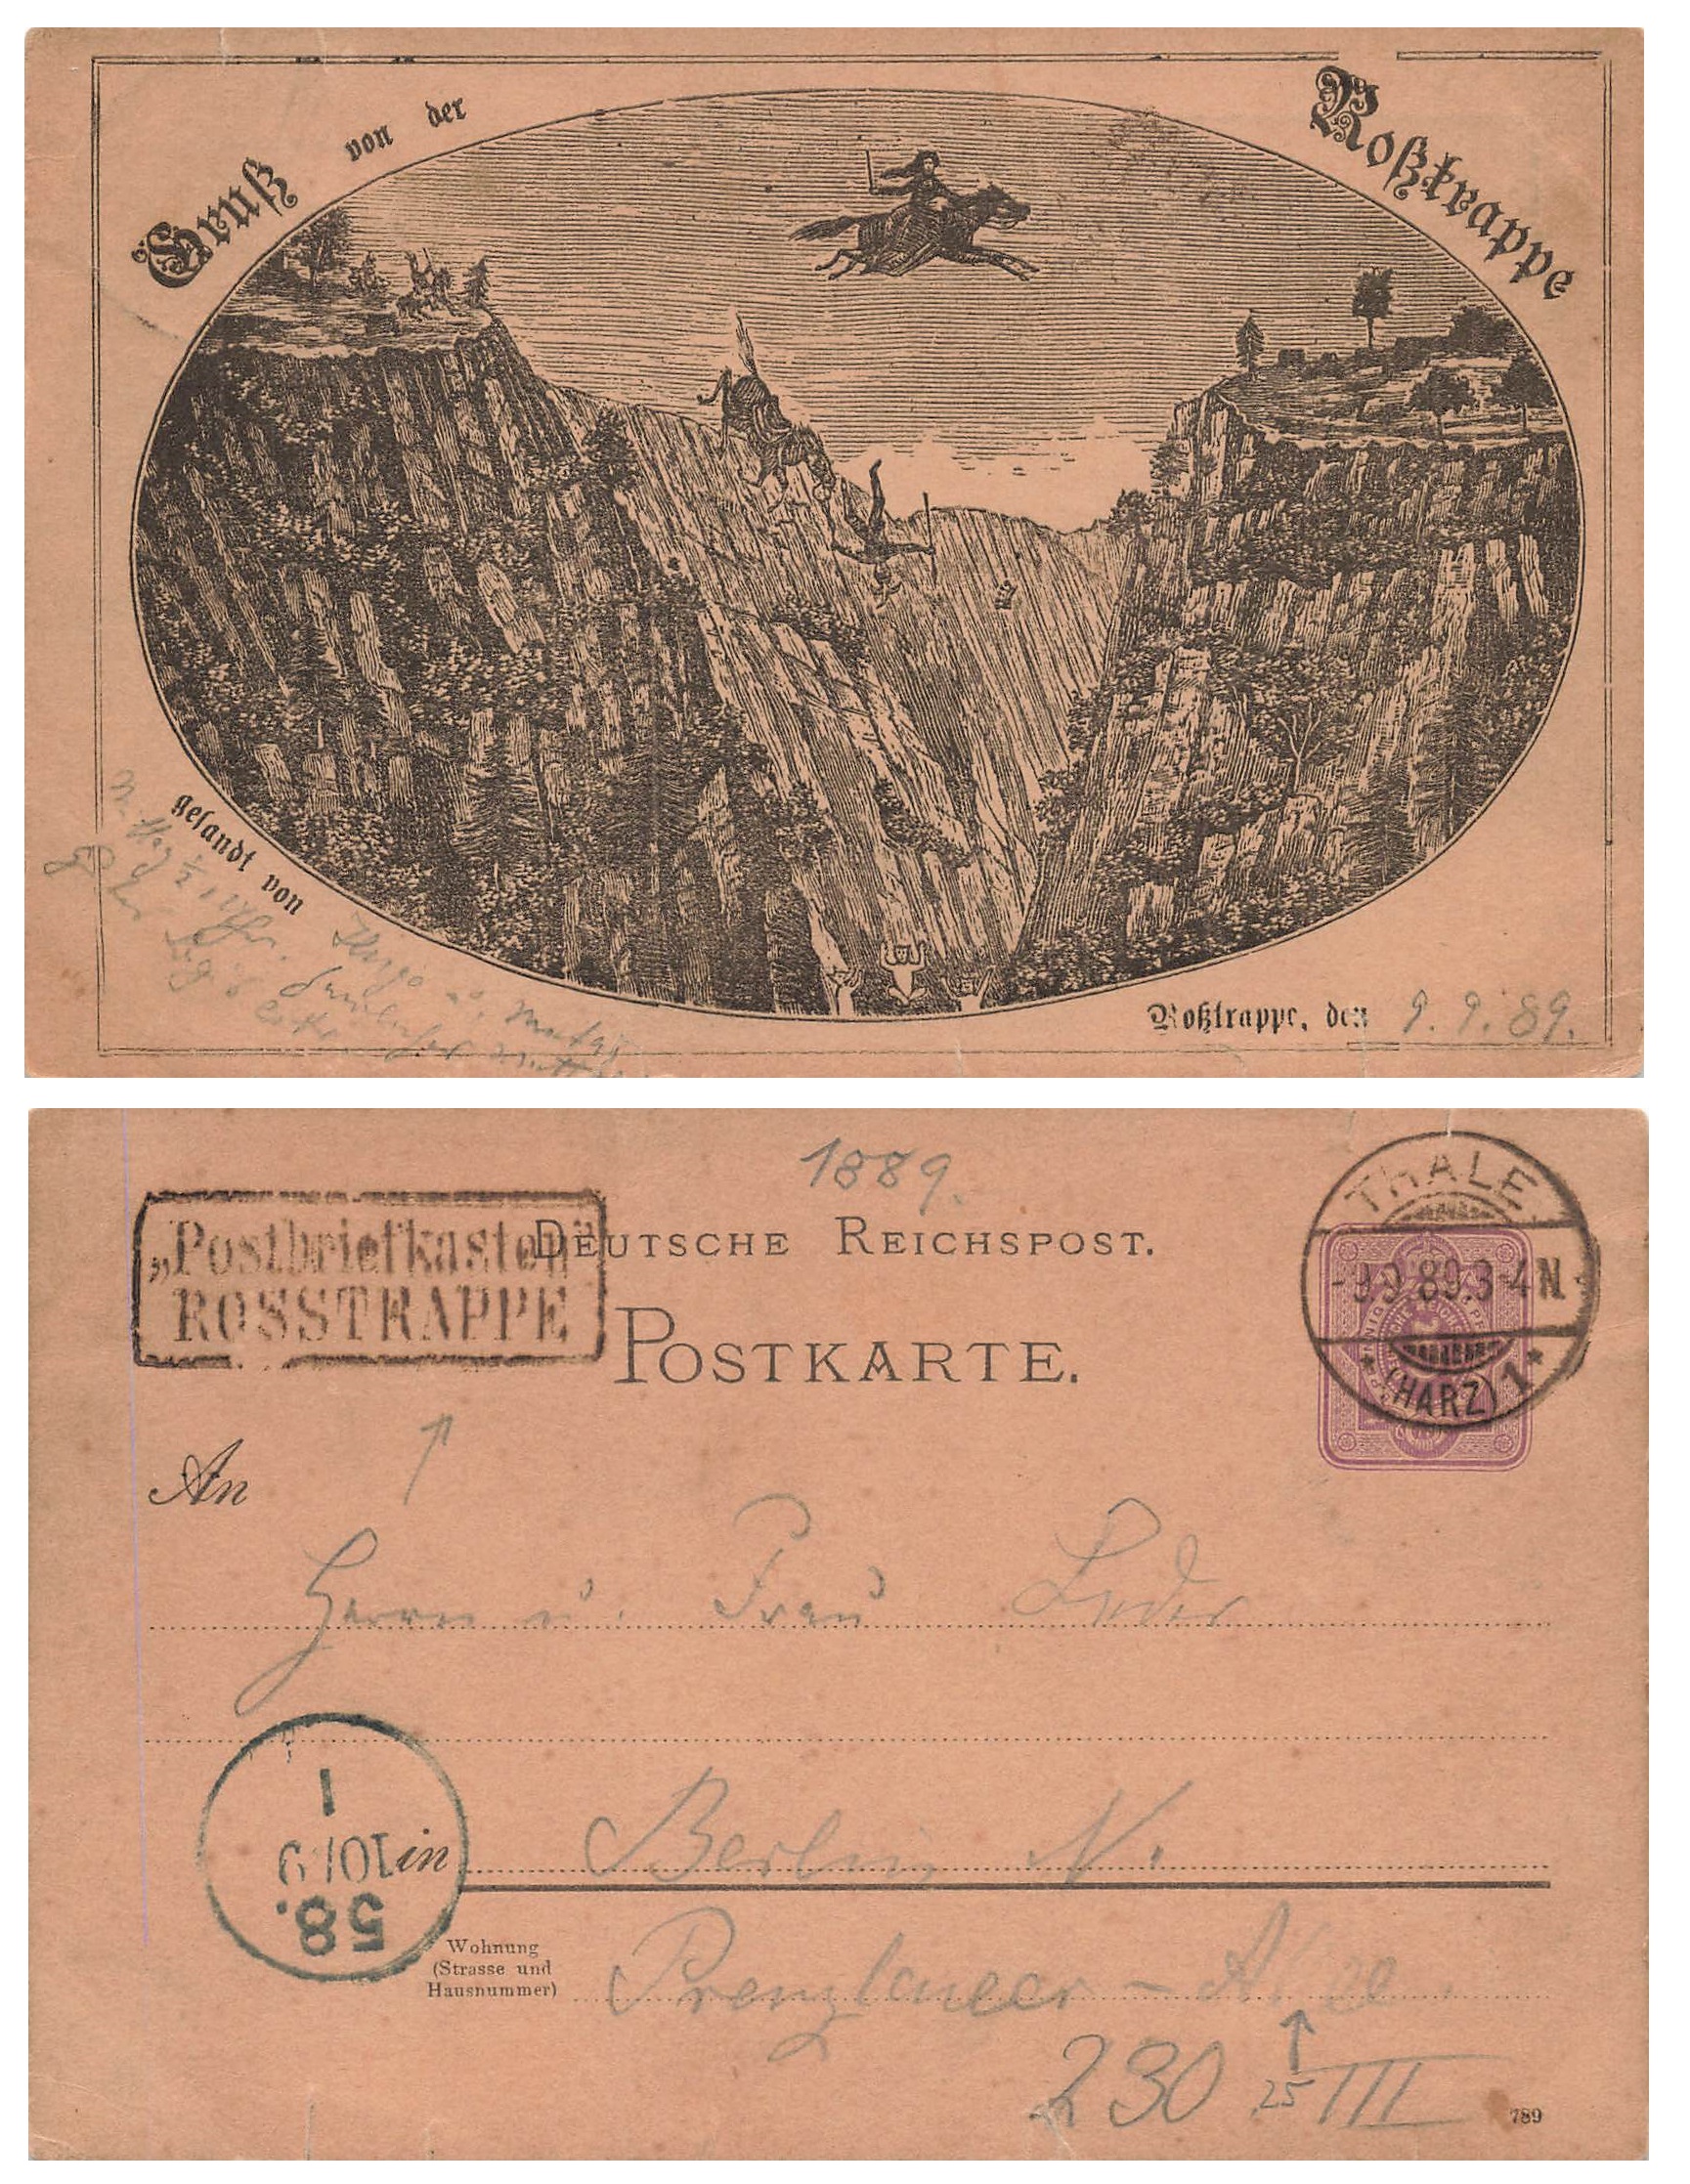 Gruß von der Roßtrappe
gesandt von
Hugo u.
Roßtrappe, den 9.9.89.
1889.
„Postbriefkasten"
ROSSTRAPPE
DEUTSCHE REICHSPOST.
POSTKARTE.
THALE
-9.9.89.3-4N.
*(HARZ)1*
An
Herrn u. Frau
1
10/9
58.
in Berlin N.
Wohnung
(Strasse und
Hausnummer)
Prenzlauer-A. 20
230 25 III
789